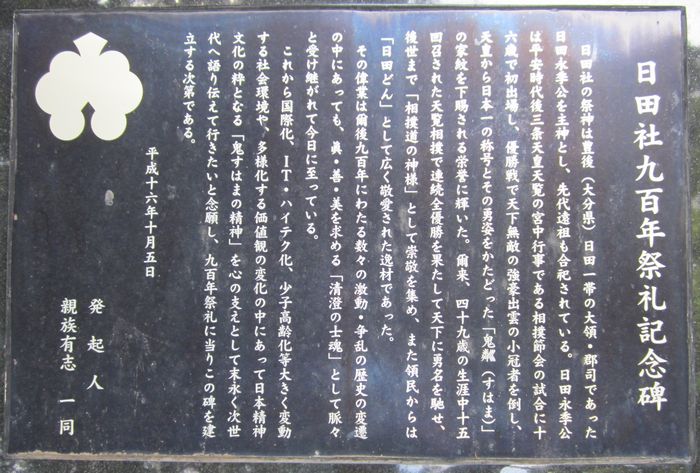 日田社九百年祭礼記念碑
日田社の祭神は豊後（大分県）日田一帯の大領・郡司であった
日田永季公を主神とし、先代遠祖も合祀されている。日田永季公
は平安時代後三条天皇天覧の宮中行事である相撲節会の試合に十
六歳で初出場し、優勝戦で天下無敵の強豪出雲の小冠者を倒し、
天皇から日本一の称号とその勇姿をかたどった「鬼（すはま）」
の家紋を下賜される栄誉に輝いた。爾来、四十九歳の生涯中十五
回召された天覧相撲で連続全優勝を果たして天下に勇名を馳せ、
後世まで「相撲道の神様」として崇敬を集め、また領民からは
「日田どん」として広く敬愛された逸材であった。
その偉業は爾後九百年にわたる数々の激動・争乱の歴史の変遷
の中にあっても、眞・善・美を求める「清澄の士魂」として脈々
と受け継がれて今日に至っている。
これから国際化、ＩＴ・ハイテク化、少子高齢化等大きく変動
する社会環境や、多様化する価値観の変化の中にあって日本精神
文化の粋となる「鬼すはまの精神」を心の支えとして末永く次世
代へ語り伝えて行きたいと念願し、九百年祭礼に当りこの碑を建
立する次第である。
平成十六年十月五日
発起人
親族有志　一同